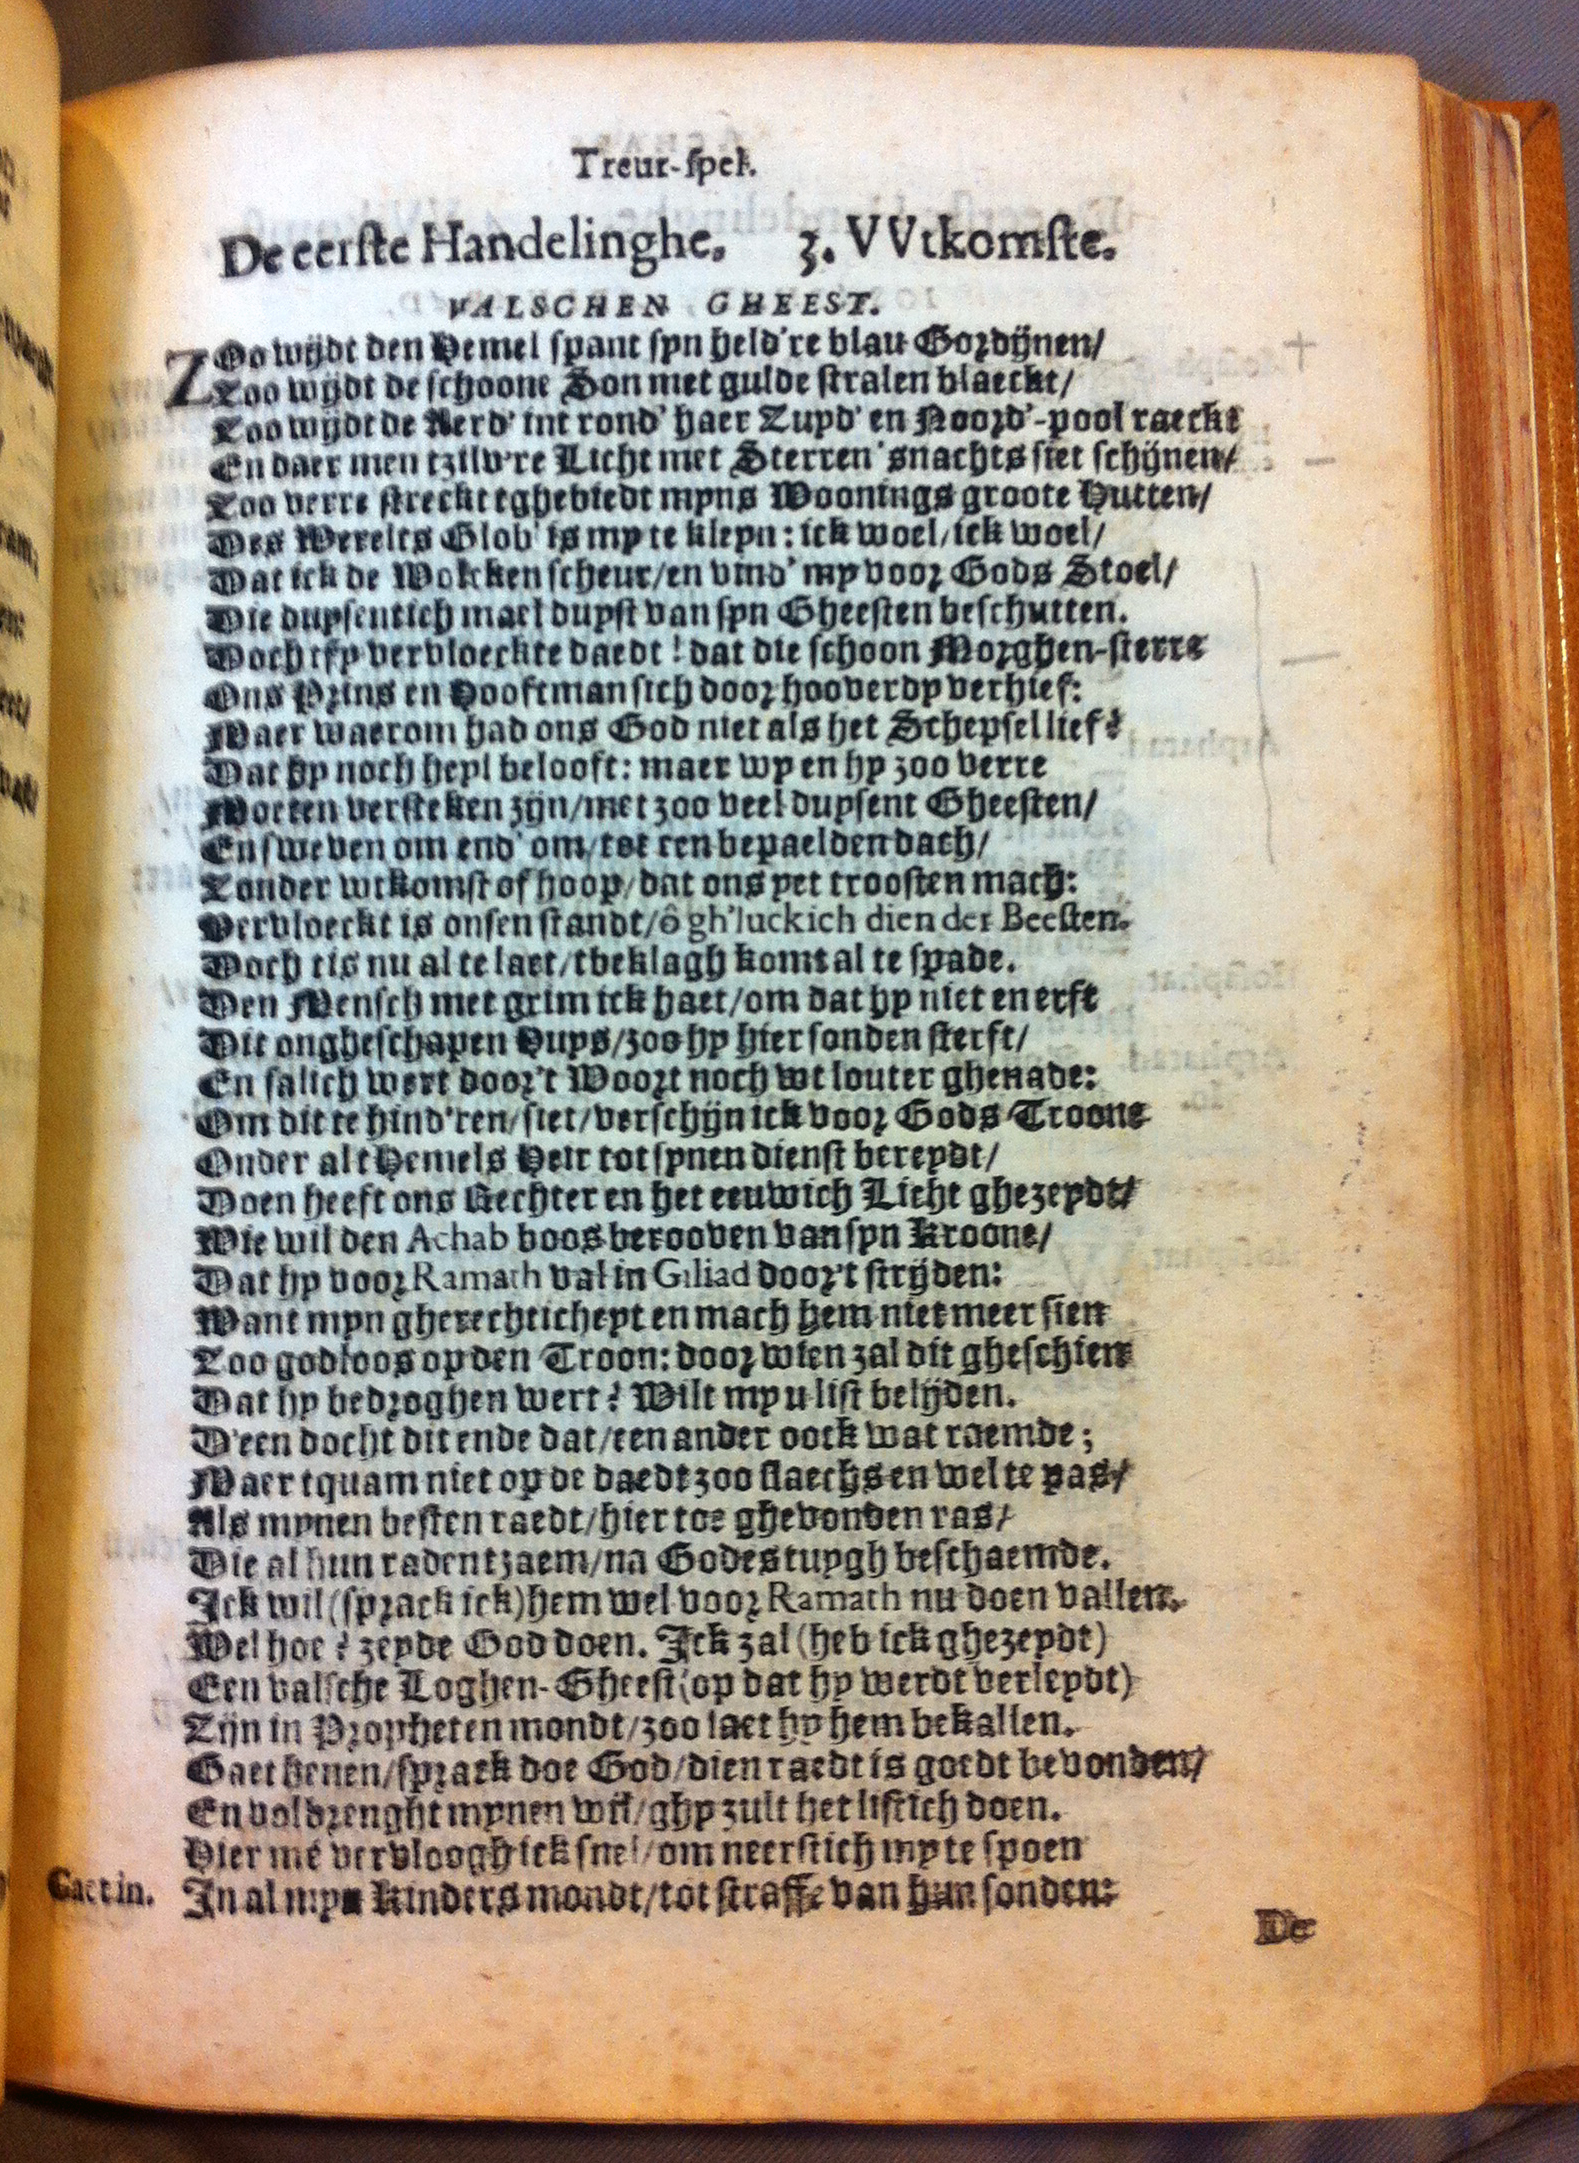 Treur-spel.
De eerste Handelinghe. 3. VVtkomste.
VALSCHEN GHEEST.
ZOo wijdt den Hemel spant syn held're blau Gordijnen/
Zoo wijdt de schoone Son met gulde stralen blaeckt/
Zoo wijdt de Aerd' int rond' haer Zuyd' en Noord'-pool raeckt
En daer men tzilv're Licht met Sterren 'snachts siet schijnen/
Zoo verre streckt tghebiedt myns Woonings groote Hutten/
Des Werelts Glob' is my te kleyn: ick woel/ick woel/
Dat ick de Wolcken scheur/en vind' my voor Gods Stoel/
Die duysentich mael duyst van syn Gheesten beschutten.
Doch tsy vervloeckte daedt! dat die schoon Morghen-sterre
Ons Prins en Hooftman sich door hooverdy verhief:
Maer waerom had ons God niet als het Schepsel lief?
Dat hy noch heyl belooft: maer wy en hy zoo verre
Moeten versteken zijn/met zoo veel duysent Gheesten/
En sweven om end' om/tot een bepaelden dach/
Zonder wtkomst of hoop/dat ons yet troosten mach:
Vervloeckt is onsen standt/ô gh'luckich dien der Beesten.
Doch tis nu al te laet/tbeklagh komt al te spade.
Den Mensch met grim ick haet/om dat hy niet en erft
Dit ongheschapen Huys/zoo hy hier sonden sterft/
En salich wert door't Woort noch wt louter ghenade:
Om dit te hind'ren/siet/verschijn ick voor Gods Troone
Onder al t Hemels Heir tot synen dienst bereydt/
Doen heeft ons Rechter en het eeuwich Licht ghezeydt/
Wie wil den Achab boos berooven van syn Kroone/
Dat hy voor Ramath val in Giliad door't strijden:
Want myn gherechticheyt en mach hem niet meer sien
Zoo godloos op den Troon: door wien zal dit gheschien
Dat hy bedroghen wert? Wilt my u list belijden.
D'een docht dit ende dat/een ander oock wat raemde;
Maer tquam niet op de daedt zoo slaechs en wel te pas/
Als mynen besten raedt/hier toe ghevonden ras/
Die al hun raden tzaem/na Godes tuygh beschaemde.
Ick wil (sprack ick) hem wel voor Ramath nu doen vallen.
Wel hoe? zeyde God doen. Ick zal (heb ick ghezeydt)
Een valsche Loghen-Gheest (op dat hy werdt verleydt)
Zijn in Propheten mondt/zoo laet hy hem bekallen.
Gaet henen/sprack doe God/dien raedt is goedt bevonden/
En volbrenght mynen wil/ghy zult het listich doen.
Hier mé vervloogh ick snel/om neerstich my te spoen
Gaet in. In al myn kinders mondt/tot straffe van hun sonden:
De